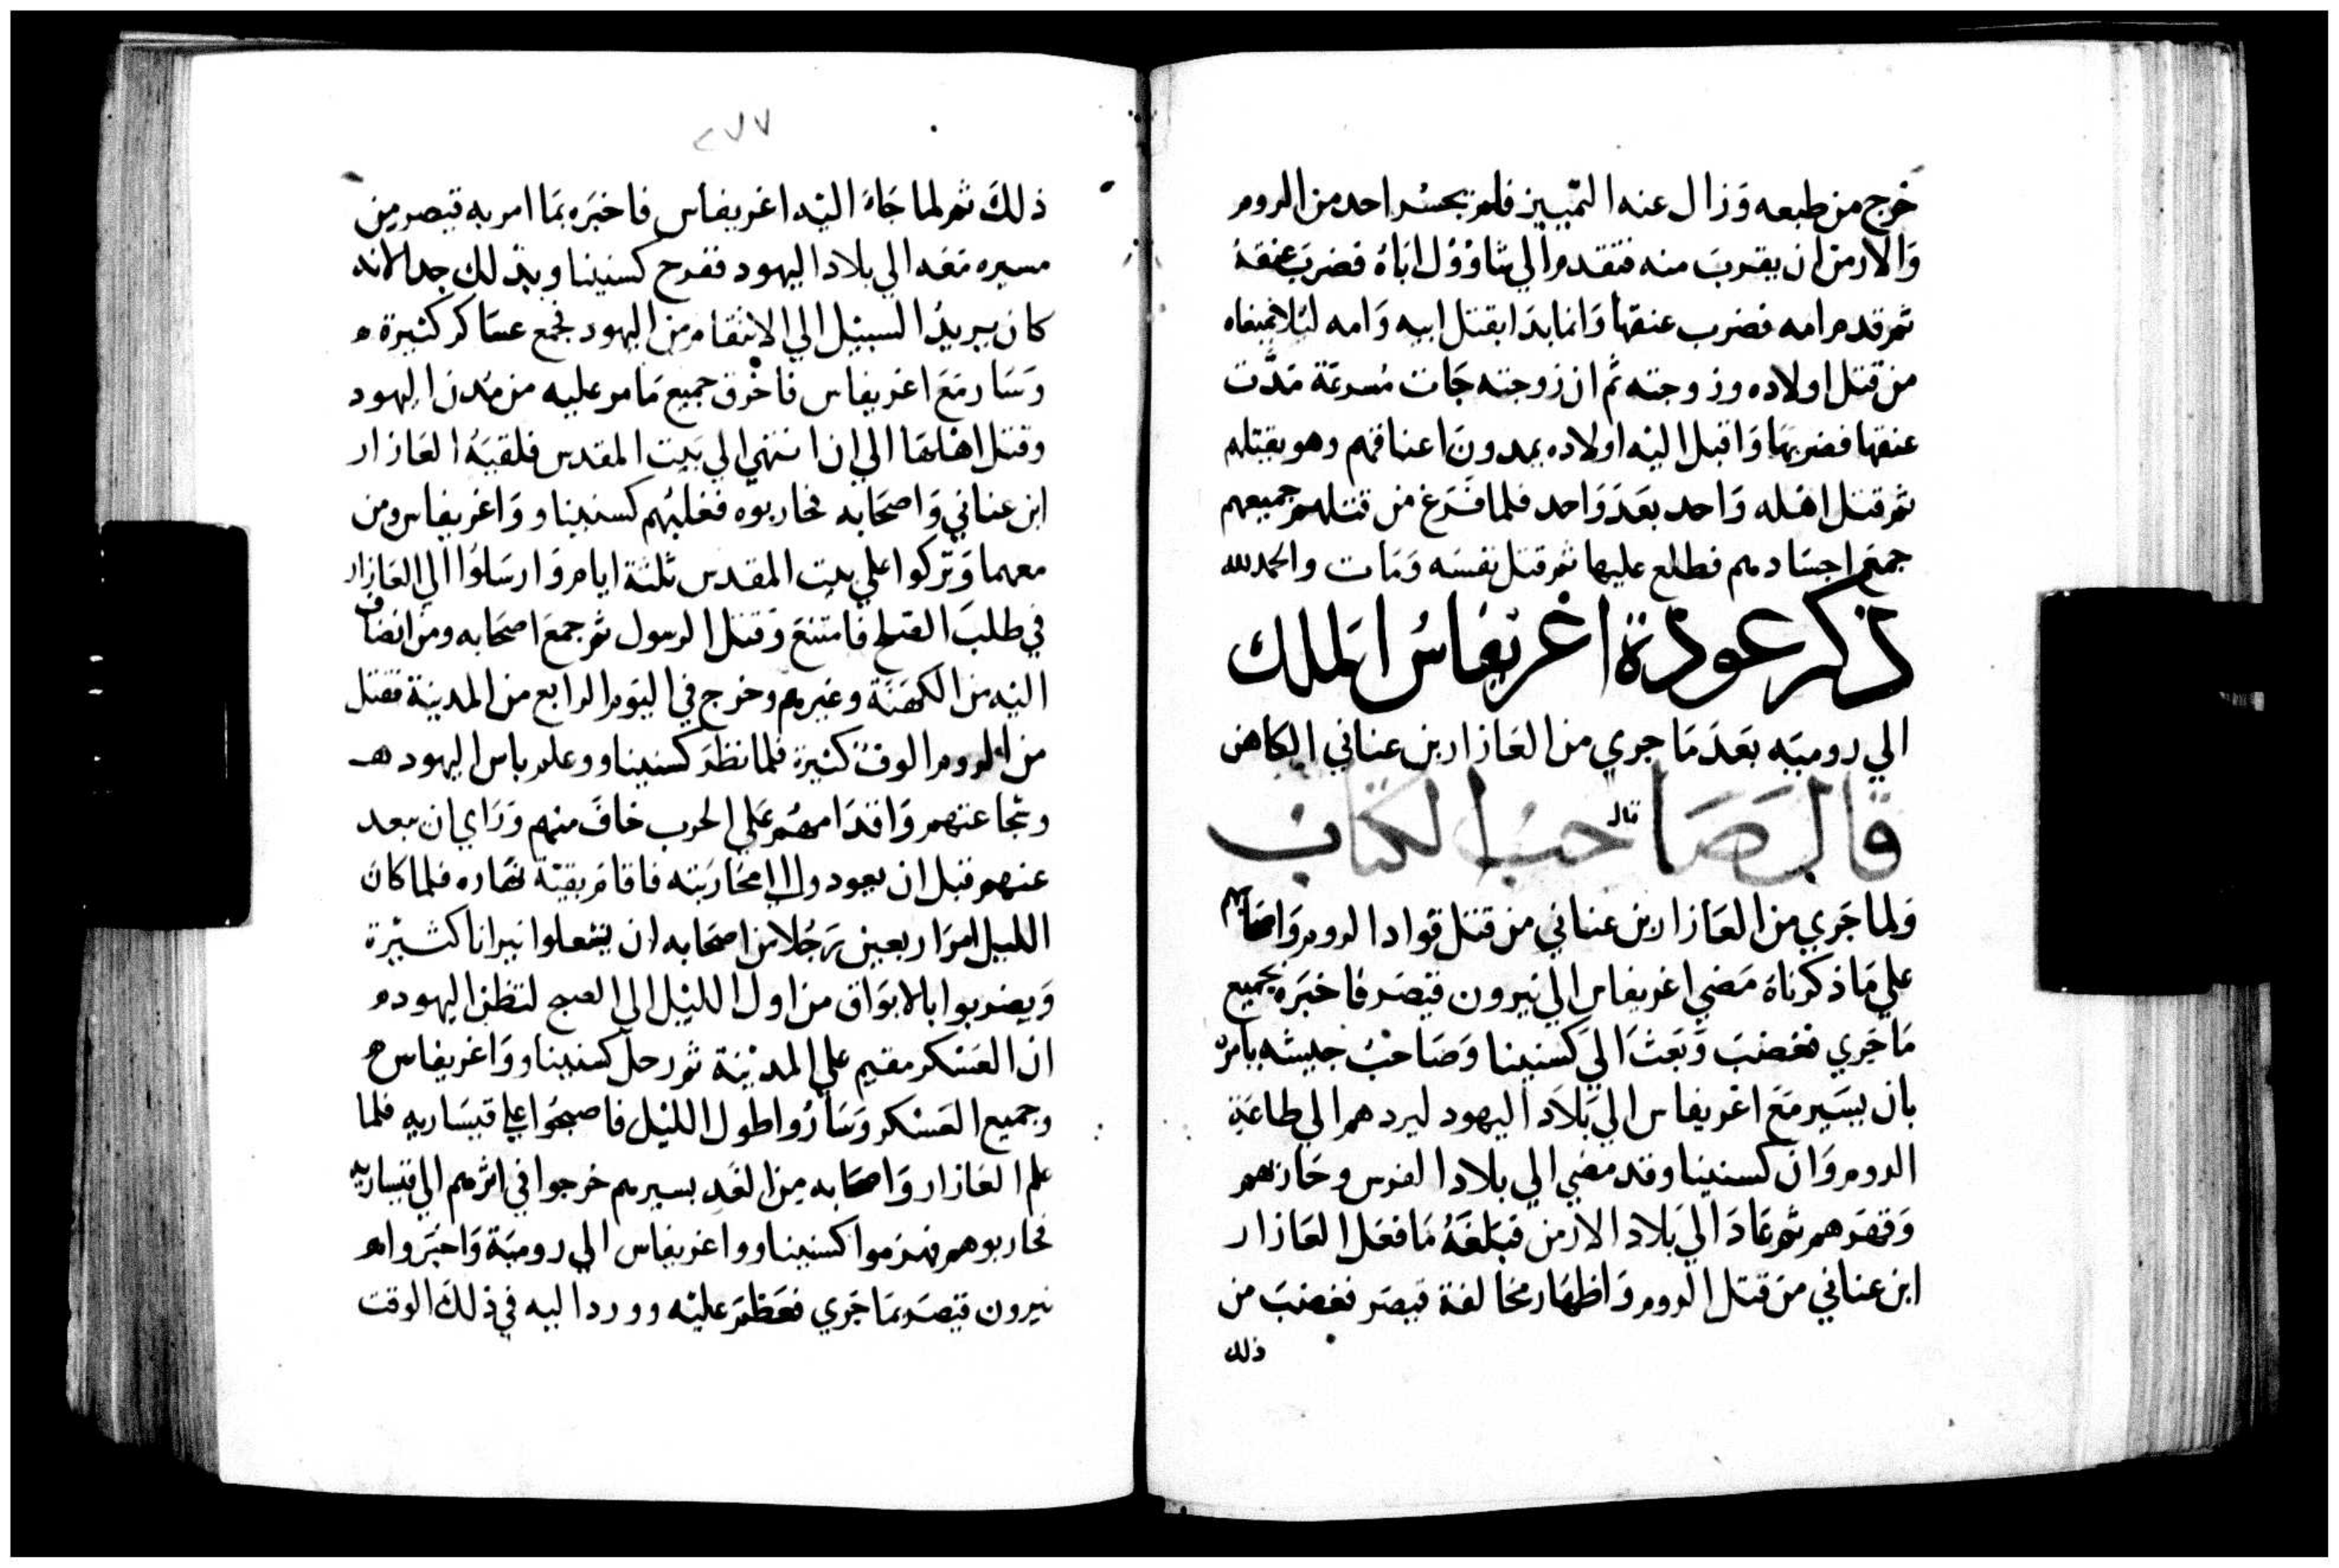 خرج من طبعه وَزال عنه التمييز فلم يجسر احد من الروم
وَالارمن ان يقرب منه فتقدم الي شاوُوُل ابَاهُ فضرب عنقهُ
ثم قدم امه فضرب عنقها وَانما بدَا بقتل ابيه وَامه ليلا يمنعاه
من قتل اولاده وزوجته ثم ان زوجته جَات مُسرعَة مَدَّت
عنقها فضربهَا وَاقبل اليْه اولاده يمدون اعناقهم وهو يقتلهم
ثم قتل اهْله وَاحد بعَد وَاحد فلما فَرَغ من قتلهم جميعهم
جمع اجسَادهم فطلع عليها ثم قتل نفسَه وَمَات والحمد لله
ذكر عودة اغريفاسُ الملك
الي روميَه بَعدَ مَا جري من العَازار بن عناني الكاهن
قال صَاحبُ الكتاب
قال
وَلما جَري من العَازار بن عناني من قتل قواد الروم وَاصحَابهم
علي مَا ذكرناهُ مَضي اغريفاس الي نيرون قيصَر فاخبَره بجميع
مَا جَري فغضبَ وَبَعَثَ الي كسنينا وَصَاحبُ جيشه يامره
بان يسَير مَع اغريفاس الي بَلاد اليهود ليردهم الي طاعَة
الروم وَان كسنيناو قد مضي الي بلاد الفرس وحَاربهم
وَقهرَهم ثم عَادَ الي بَلاد الارمن فبَلغَهُ مَا فعَل العَازار
ابن عناني من قتل الروم وَاظهَار مخالفة قيصَر فغضبَ من
ذلك
٢٧٧
ذلكَ ثم لما جَاهَ اليْه اغريفاس فاخبَره بمَا امر به قيصر من
مسيره مَعَه الي بلاد اليهود ففرح كسنيناو بذلك جدا لانه
كان يريدُ السبيْل الي الانتقام من اليهود فجمع عسَاكر كثيرة
وَسَار مَعَ اغريفاس فاخرق جميع مَا مر عليه من مُدن اليهود
وقتل اهْلهَا الي ان انتهي الي بَيت المقدس فلقيَهُ العَازار
ابن عناني وَاصحَابه فحاربوه فغلبُهم كسنيناو وَاغريفاس ومن
معهما وَتركوا علي بيت المقدس ثلثة ايام وَارسَلوُا الي العَازار
في طلبَ الصلح فامتنعَ وَقتل الرسول ثم جمعَ اصحَابه ومن انضاف
اليْه من الكهنَة وغيرهم وخرج في اليوم الرابع من المدينة فقتل
من الروم الوفٌ كثيرة فلما نظر كسنيناو وعلم باس اليهود
وشجاعتهم وَاقدَامهُم عَلي الحرب خافَ منهم وَرَاي ان يبعد
عنهم قبل ان يعودوا الي محَارَبَته فاقام بقيَّة نهَاره فلما كان
الليل امرَ اربعين رَجُلا من اصحَابه ان يشعلوا نيرانا كثيْرة
وَيضربوا بالابوَاق من اول الليْل الي الصبح لتظن اليهود
ان العَسْكر مقيم علي المديْنة ثم رحلَ كسنيناو وَاغريفاس
وجميع العَسْكر وَسَارُوا طول الليْل فاصبحُوا علي قيسَاريه فلما
علم العَازار وَاصحَابه من الغَد بسيرهم خرجوا في اثرهم الي قيساريه
فحاربوهم فهزموا كسنيناو واغريفاس الي روميَة وَاخبَروا
نيرون قيصَر بمَا جَري فعَظمَ عليْه وورد اليه في ذلكَ الوقت